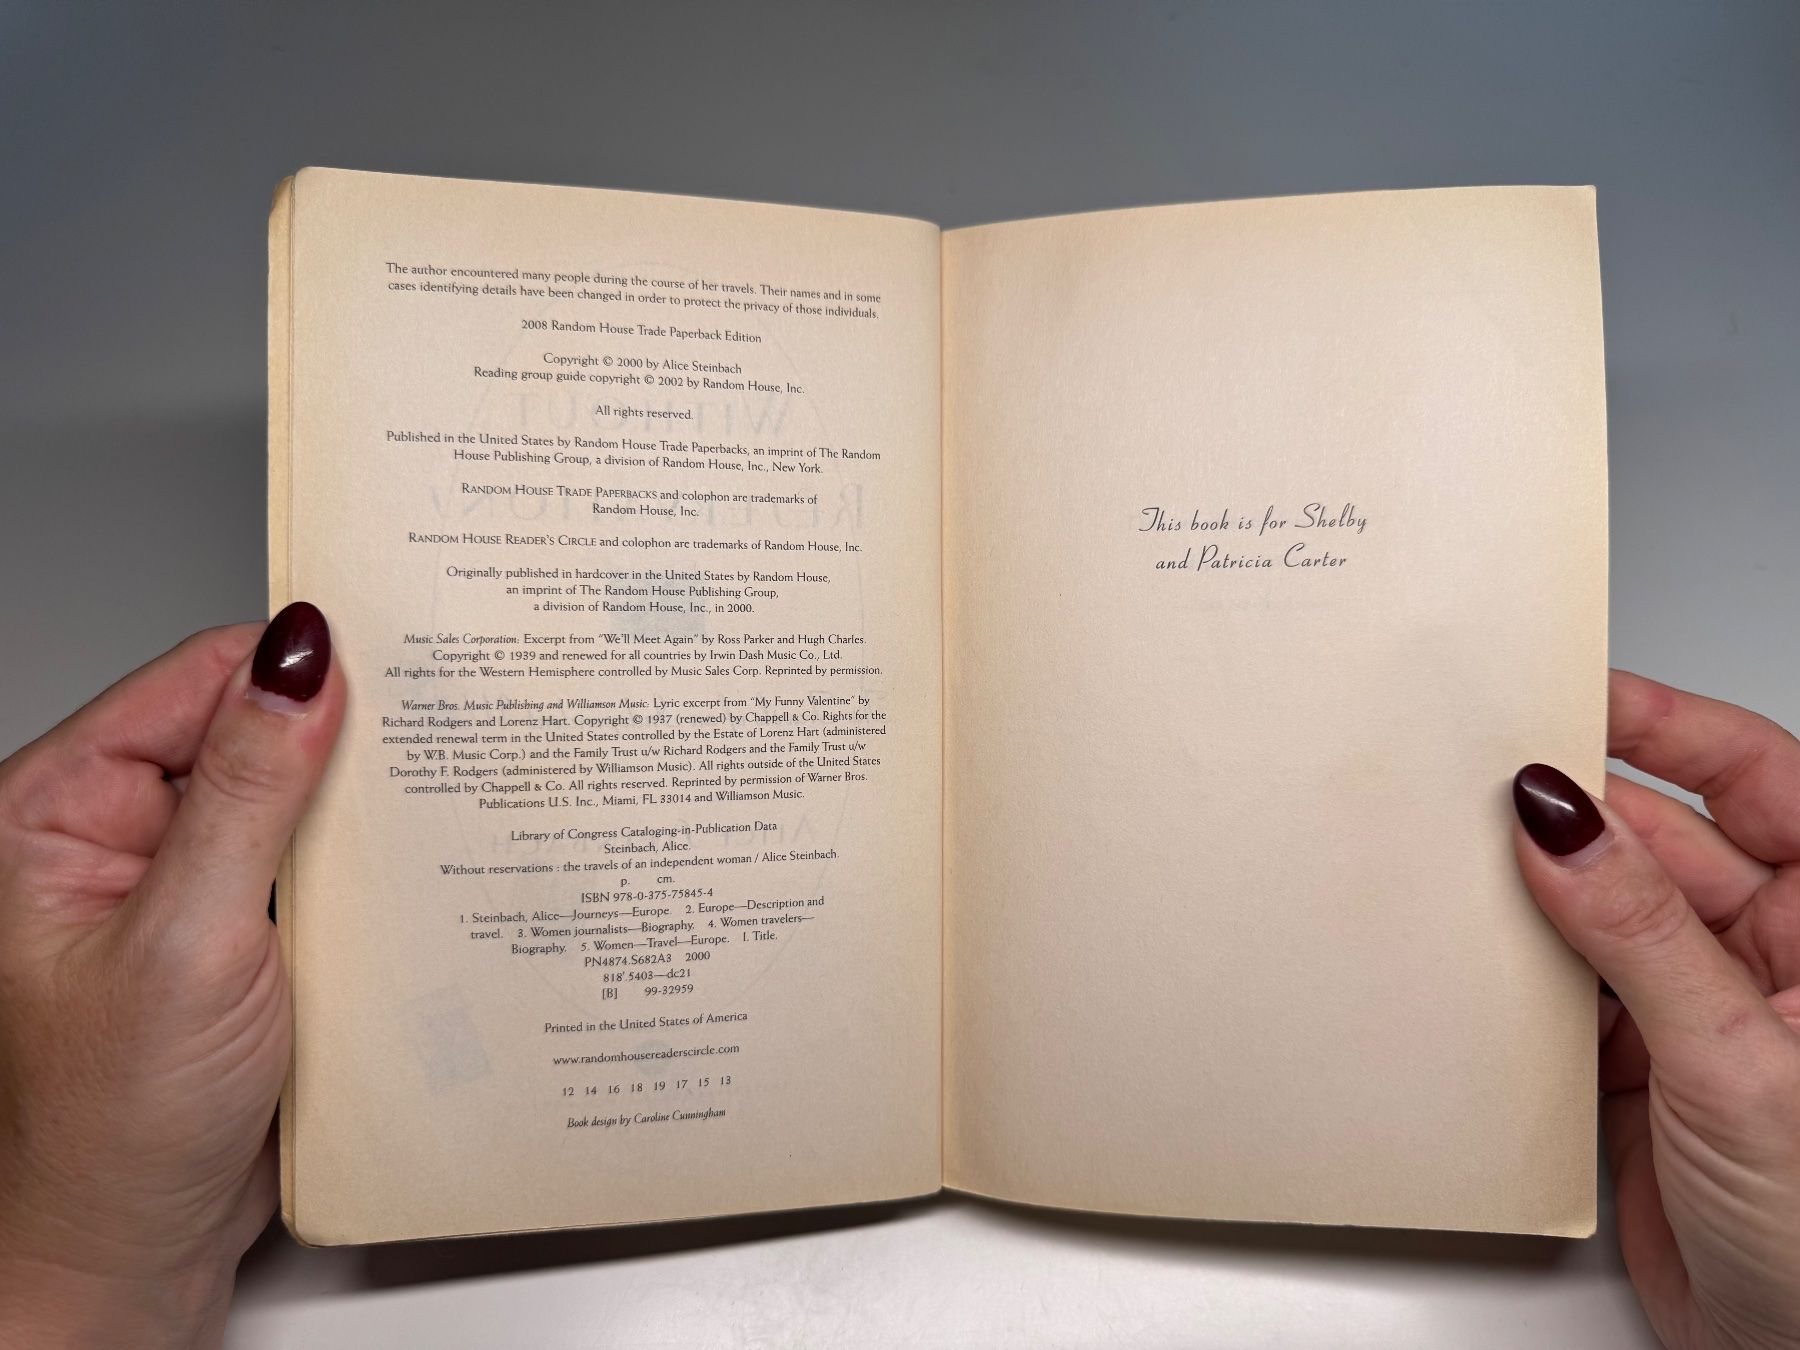 The author encountered many people during the course of her travels. Their names and in some
cases identifying details have been changed in order to protect the privacy of those individuals.
2008 Random House Trade Paperback Edition
Copyright © 2000 by Alice Steinbach
Reading group guide copyright © 2002 by Random House, Inc.
All rights reserved.
Published in the United States by Random House Trade Paperbacks, an imprint of The Random
House Publishing Group, a division of Random House, Inc., New York.
RANDOM HOUSE TRADE PAPERBACKS and colophon are trademarks of
Random House, Inc.
RANDOM HOUSE READER'S CIRCLE and colophon are trademarks of Random House, Inc.
Originally published in hardcover in the United States by Random House,
an imprint of The Random House Publishing Group,
a division of Random House, Inc., in 2000.
Music Sales Corporation: Excerpt from "We'll Meet Again" by Ross Parker and Hugh Charles.
Copyright © 1939 and renewed for all countries by Irwin Dash Music Co., Ltd.
All rights for the Western Hemisphere controlled by Music Sales Corp. Reprinted by permission.
Warner Bros. Music Publishing and Williamson Music: Lyric excerpt from "My Funny Valentine" by
Richard Rodgers and Lorenz Hart. Copyright © 1937 (renewed) by Chappell & Co. Rights for the
extended renewal term in the United States controlled by the Estate of Lorenz Hart (administered
by W.B. Music Corp.) and the Family Trust u/w Richard Rodgers and the Family Trust u/w
Dorothy F. Rodgers (administered by Williamson Music). All rights outside of the United States
controlled by Chappell & Co. All rights reserved. Reprinted by permission of Warner Bros.
Publications U.S. Inc., Miami, FL 33014 and Williamson Music.
Library of Congress Cataloging-in-Publication Data
Steinbach, Alice.
Without reservations : the travels of an independent woman / Alice Steinbach.
p. cm.
ISBN 978-0-375-75845-4
1. Steinbach, Alice—Journeys—Europe. 2. Europe—Description and
travel. 3. Women journalists—Biography. 4. Women travelers—
Biography. 5. Women—Travel—Europe. I. Title.
PN4874.S682A3 2000
818'.5403—dc21
[B] 99-32959
Printed in the United States of America
www.randomhousereaderscircle.com
12 14 16 18 19 17 15 13
Book design by Caroline Cunningham
This book is for Shelby
and Patricia Carter